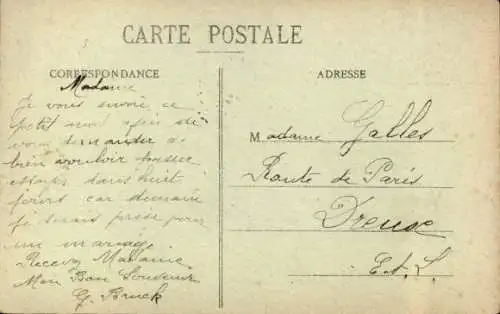 CARTE POSTALE
CORRESPONDANCE
Madame
Je vous envoie ce
petit mot afin de
vous demander de
bien vouloir
dans huit
jours car demain
je serais prise pour
un mariage
Recevez Madame
Mon Bon Souvenir
G. Bruck
ADRESSE
Madame Galles
Route de Paris
Dreux
E.et.L.